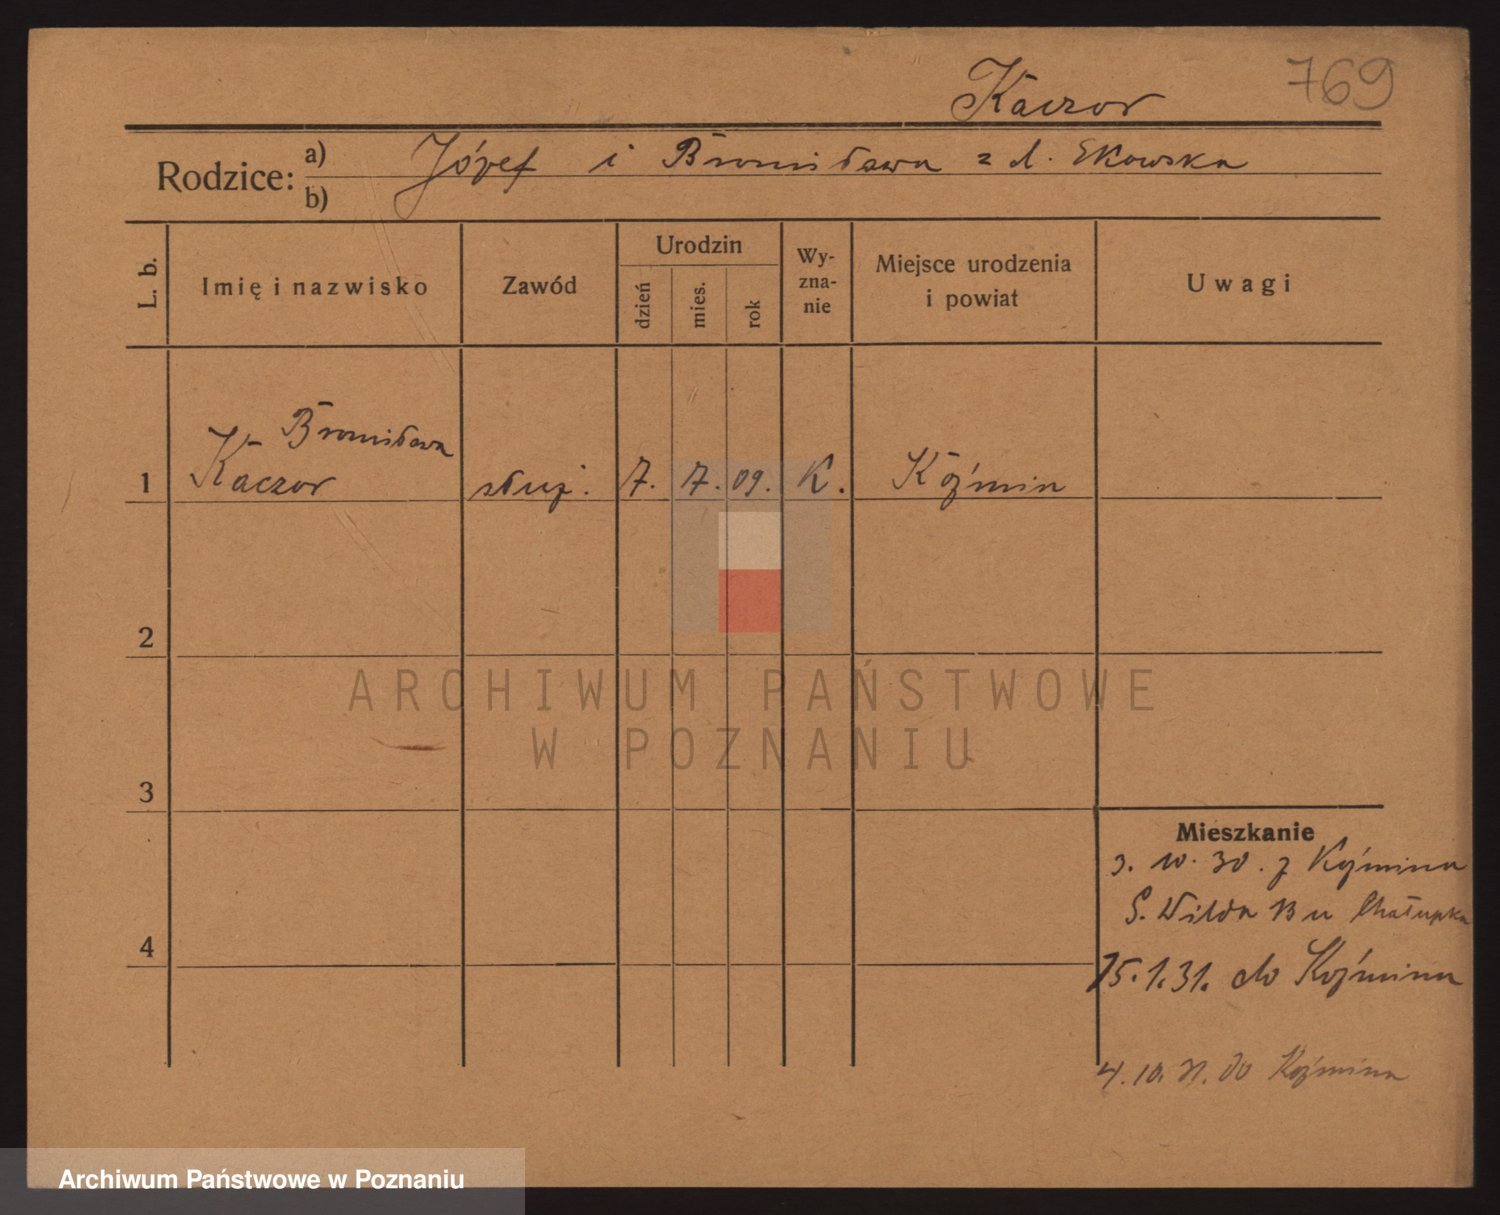 Kaczor 769
Rodzice: a) Józef i Bronisława z d. Ekowska
b)
L. b. Imię i nazwisko Zawód Urodzin dzień mies. rok Wy-zna-nie Miejsce urodzenia i powiat Uwagi
Bronisława
1 Kaczor służ. 7. 7. 09. K. Koźmin
2
ARCHIWUM PAŃSTWOWE
W POZNANIU
3
Mieszkanie
3. 10. 30. z Koźmina
G. Wilda 13 u Chałupka
4
15.1.31. do Koźmina
4.10.31. do Koźmina
Archiwum Państwowe w Poznaniu